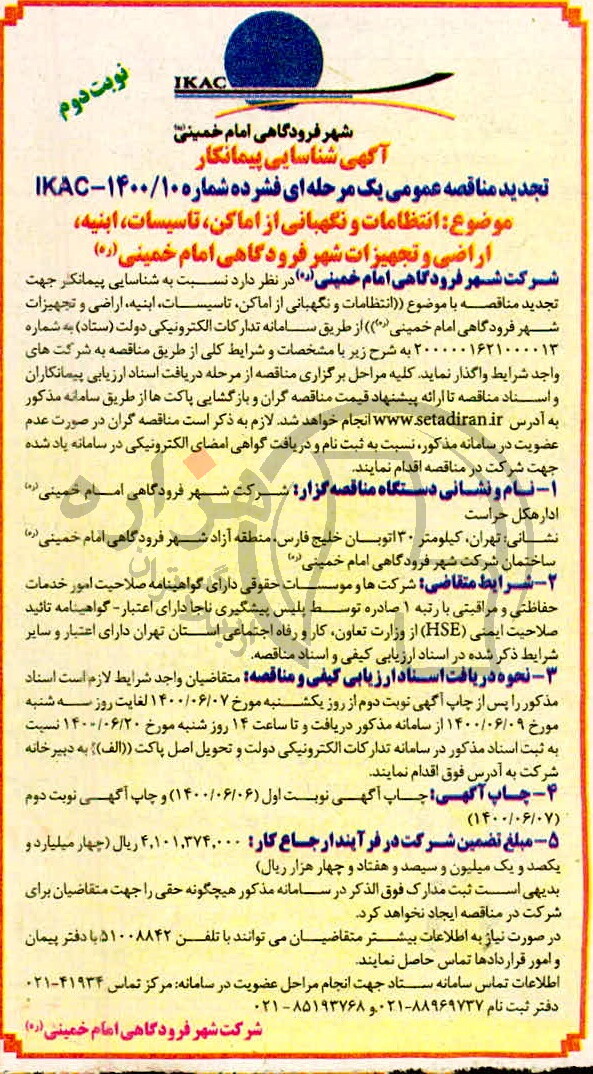 نوبت دوم
IKAC
شهر فرودگاهی امام خمینی(ره)
آگهی شناسایی پیمانکار
تجدید مناقصه عمومی یک مرحله ای فشرده شماره IKAC-۱۴۰۰/۱۰
موضوع: انتظامات و نگهبانی از اماکن، تاسیسات، ابنیه،
اراضی و تجهیزات شهر فرودگاهی امام خمینی(ره)
شرکت شهر فرودگاهی امام خمینی(ره) در نظر دارد نسبت به شناسایی پیمانکار جهت
تجدید مناقصه با موضوع ((انتظامات و نگهبانی از اماکن، تاسیسات، ابنیه، اراضی و تجهیزات
شهر فرودگاهی امام خمینی(ره))) از طریق سامانه تدارکات الکترونیکی دولت (ستاد) به شماره
۲۰۰۰۰۰۱۶۲۱۰۰۰۰۱۳ به شرح زیر با مشخصات و شرایط کلی از طریق مناقصه به شرکت های
واجد شرایط واگذار نماید. کلیه مراحل برگزاری مناقصه از مرحله دریافت اسناد ارزیابی پیمانکاران
و اسناد مناقصه تا ارائه پیشنهاد قیمت مناقصه گران و بازگشایی پاکت ها از طریق سامانه مذکور
به آدرس www.setadiran.ir انجام خواهد شد. لازم به ذکر است مناقصه گران در صورت عدم
عضویت در سامانه مذکور، نسبت به ثبت نام و دریافت گواهی امضای الکترونیکی در سامانه یاد شده
جهت شرکت در مناقصه اقدام نمایند.
۱- نام و نشانی دستگاه مناقصه گزار: شرکت شهر فرودگاهی امام خمینی(ره)
اداره‌کل حراست
نشانی: تهران، کیلومتر ۳۰ اتوبان خلیج فارس، منطقه آزاد شهر فرودگاهی امام خمینی(ره)
ساختمان شرکت شهر فرودگاهی امام خمینی(ره)
۲- شرایط متقاضی: شرکت ها و موسسات حقوقی دارای گواهینامه صلاحیت امور خدمات
حفاظتی و مراقبتی با رتبه ۱ صادره توسط پلیس پیشگیری ناجا دارای اعتبار- گواهینامه تائید
صلاحیت ایمنی (HSE) از وزارت تعاون، کار و رفاه اجتماعی استان تهران دارای اعتبار و سایر
شرایط ذکر شده در اسناد ارزیابی کیفی و اسناد مناقصه.
۳- نحوه دریافت اسناد ارزیابی کیفی و مناقصه: متقاضیان واجد شرایط لازم است اسناد
مذکور را پس از چاپ آگهی نوبت دوم از روز یکشنبه مورخ ۱۴۰۰/۰۶/۰۷ لغایت روز سه شنبه
مورخ ۱۴۰۰/۰۶/۰۹ از سامانه مذکور دریافت و تا ساعت ۱۴ روز شنبه مورخ ۱۴۰۰/۰۶/۲۰ نسبت
به ثبت اسناد مذکور در سامانه تدارکات الکترونیکی دولت و تحویل اصل پاکت ((الف)) به دبیرخانه
شرکت به آدرس فوق اقدام نمایند.
۴- چاپ آگهی: چاپ آگهی نوبت اول (۱۴۰۰/۰۶/۰۶) و چاپ آگهی نوبت دوم
(۱۴۰۰/۰۶/۰۷)
۵- مبلغ تضمین شرکت در فرآیند ارجاع کار: ۴,۱۰۱,۳۷۴,۰۰۰ ریال (چهار میلیارد و
یکصد و یک میلیون و سیصد و هفتاد و چهار هزار ریال)
بدیهی است ثبت مدارک فوق الذکر در سامانه مذکور هیچگونه حقی را جهت متقاضیان برای
شرکت در مناقصه ایجاد نخواهد کرد.
در صورت نیاز به اطلاعات بیشتر متقاضیان می توانند با تلفن ۵۱۰۰۸۸۴۲ با دفتر پیمان
و امور قراردادها تماس حاصل نمایند.
اطلاعات تماس سامانه ستاد جهت انجام مراحل عضویت در سامانه: مرکز تماس ۴۱۹۳۴-۰۲۱
دفتر ثبت نام ۸۸۹۶۹۷۳۷-۰۲۱ و ۸۵۱۹۳۷۶۸-۰۲۱
شرکت شهر فرودگاهی امام خمینی(ره)
هزاره